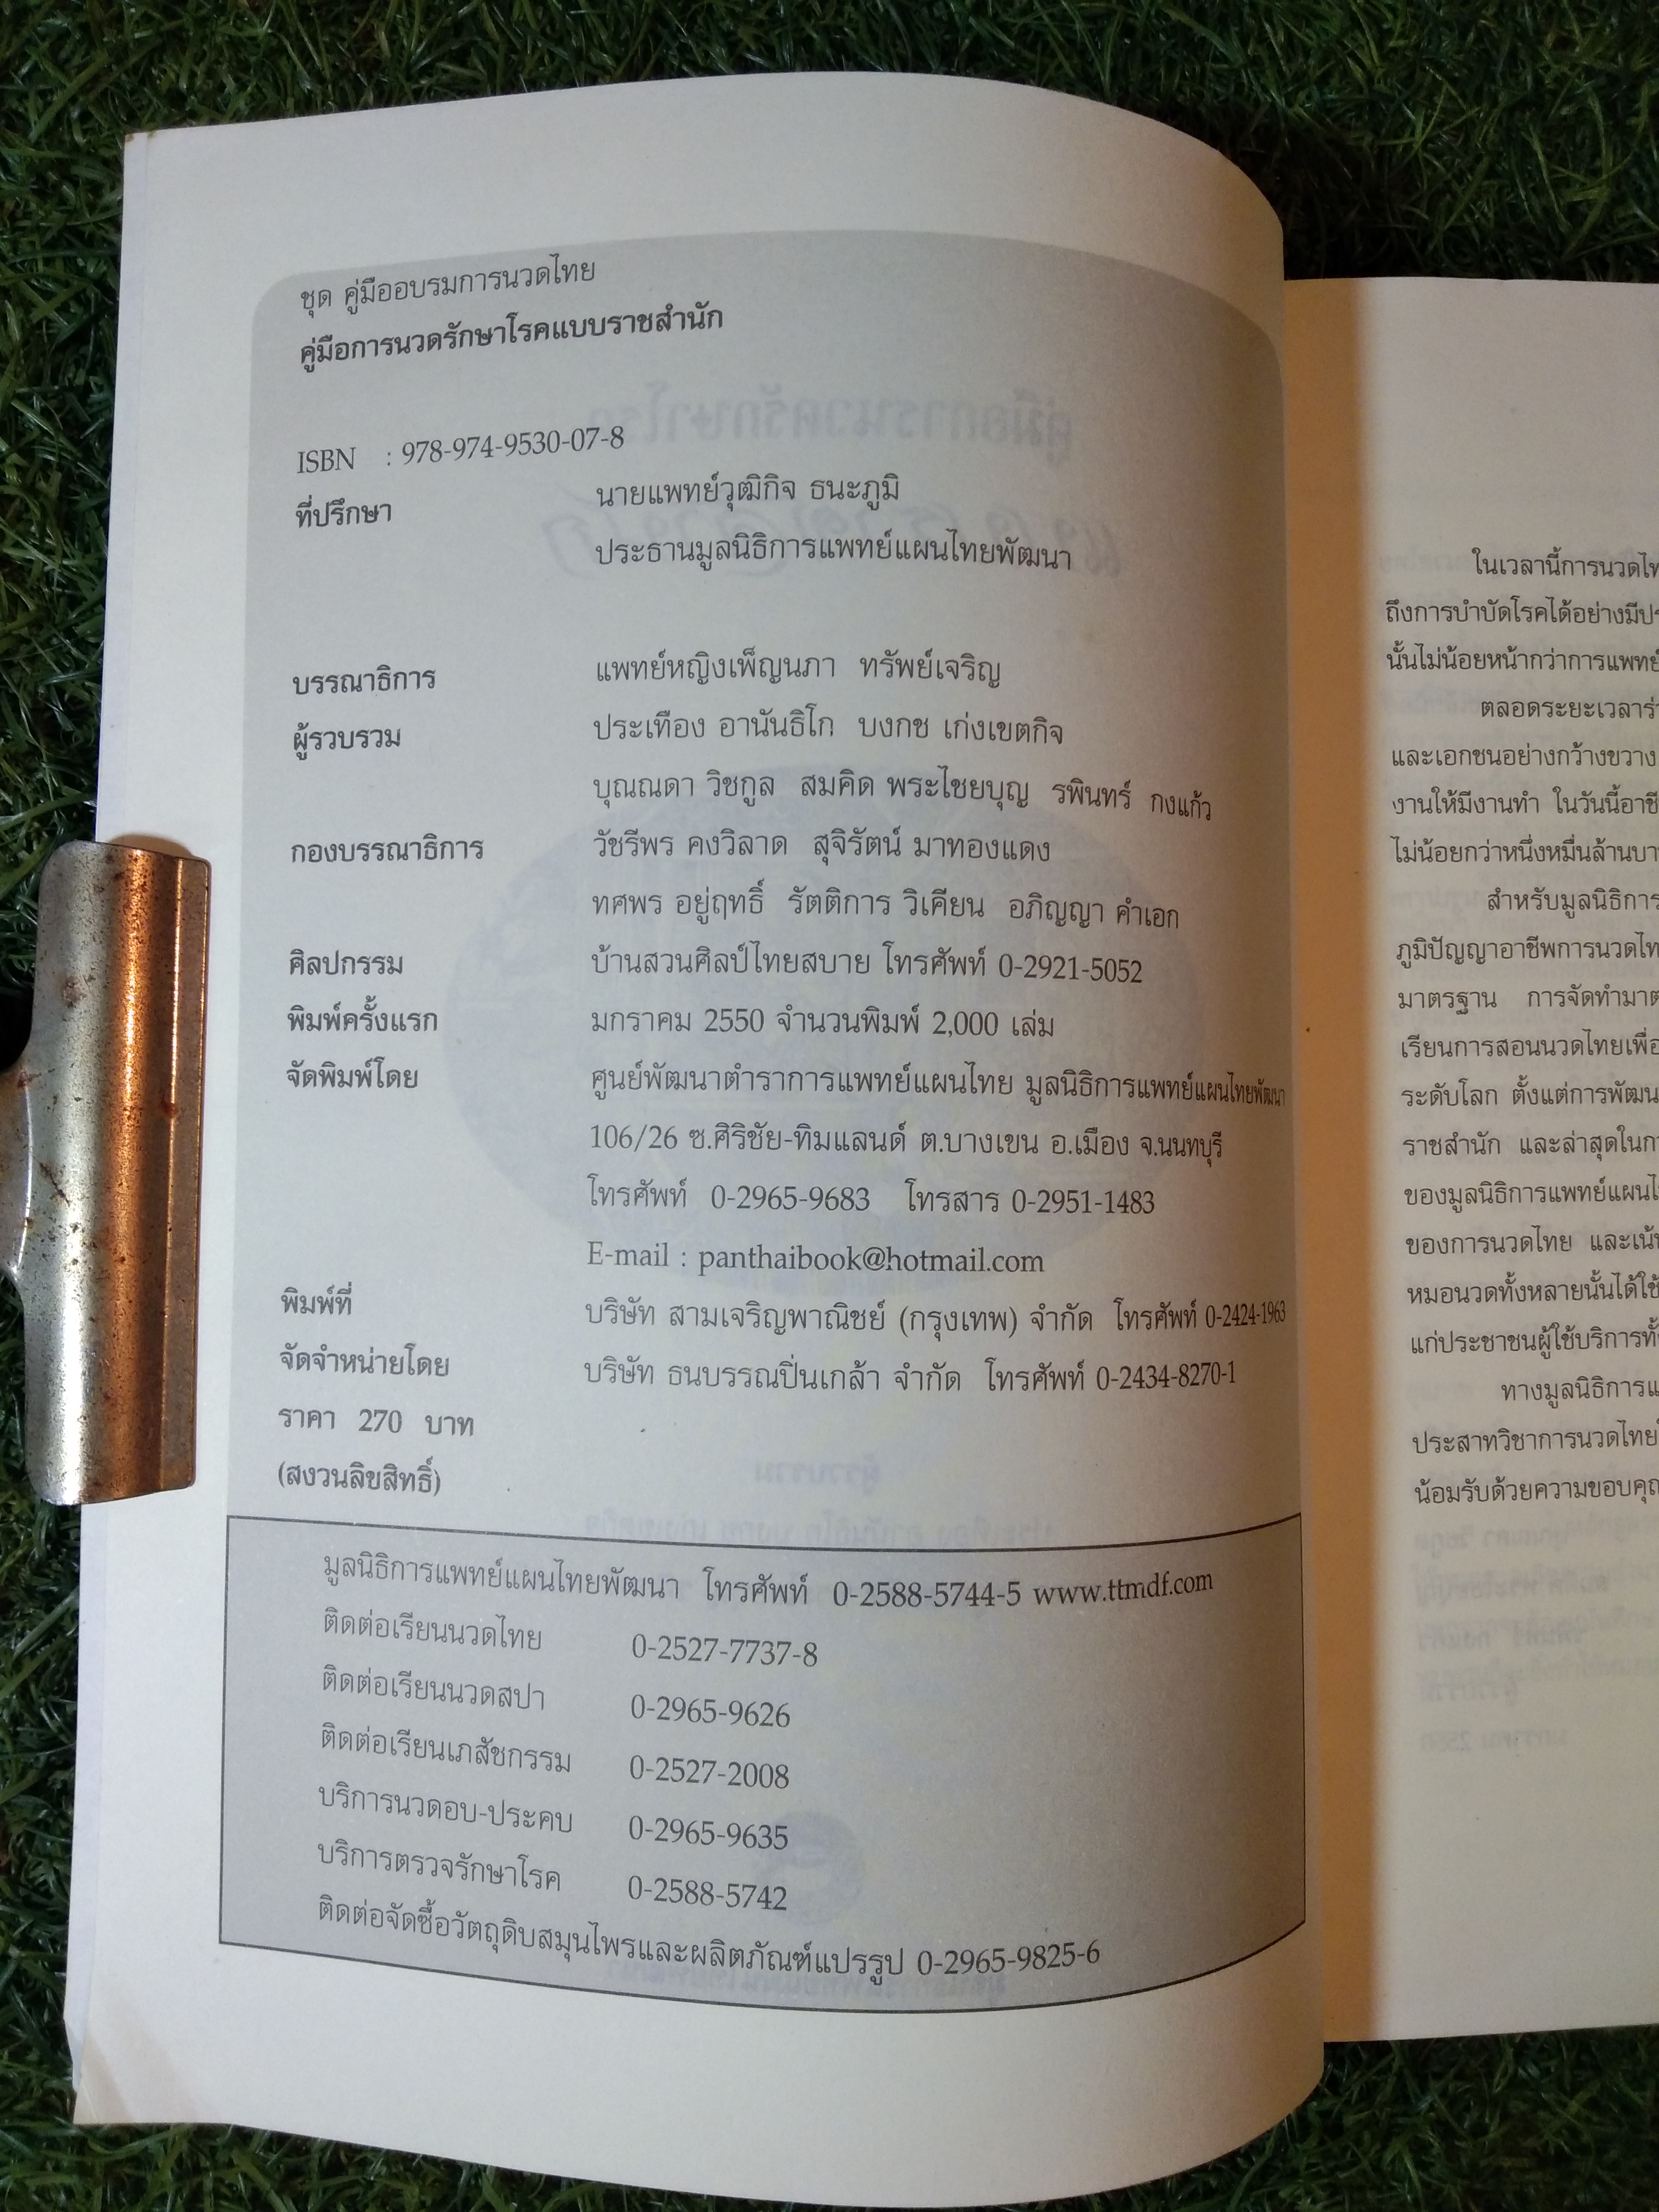 ชุด คู่มืออบรมการนวดไทย
คู่มือการนวดรักษาโรคแบบราชสำนัก
ISBN : 978-974-9530-07-8
ที่ปรึกษา นายแพทย์วุฒิกิจ ธนะภูมิ
ประธานมูลนิธิการแพทย์แผนไทยพัฒนา
บรรณาธิการ แพทย์หญิงเพ็ญนภา ทรัพย์เจริญ
ผู้รวบรวม ประเทือง อานันธิโก บงกช เก่งเขตกิจ
บุณณดา วิชกูล สมคิด พระไชยบุญ รพินทร์ กงแก้ว
กองบรรณาธิการ วัชรีพร คงวิลาด สุจิรัตน์ มาทองแดง
ทศพร อยู่ฤทธิ์ รัตติการ วิเคียน อภิญญา คำเอก
ศิลปกรรม บ้านสวนศิลป์ไทยสบาย โทรศัพท์ 0-2921-5052
พิมพ์ครั้งแรก มกราคม 2550 จำนวนพิมพ์ 2,000 เล่ม
จัดพิมพ์โดย ศูนย์พัฒนาตำราการแพทย์แผนไทย มูลนิธิการแพทย์แผนไทยพัฒนา
106/26 ซ.ศิริชัย-ทิมแลนด์ ต.บางเขน อ.เมือง จ.นนทบุรี
โทรศัพท์ 0-2965-9683 โทรสาร 0-2951-1483
E-mail : panthaibook@hotmail.com
พิมพ์ที่ บริษัท สามเจริญพาณิชย์ (กรุงเทพ) จำกัด โทรศัพท์ 0-2424-1963
จัดจำหน่ายโดย บริษัท ธนบรรณปิ่นเกล้า จำกัด โทรศัพท์ 0-2434-8270-1
ราคา 270 บาท
(สงวนลิขสิทธิ์)
มูลนิธิการแพทย์แผนไทยพัฒนา โทรศัพท์ 0-2588-5744-5 www.ttmdf.com
ติดต่อเรียนนวดไทย 0-2527-7737-8
ติดต่อเรียนนวดสปา 0-2965-9626
ติดต่อเรียนเภสัชกรรม 0-2527-2008
บริการนวดอบ-ประคบ 0-2965-9635
บริการตรวจรักษาโรค 0-2588-5742
ติดต่อจัดซื้อวัตถุดิบสมุนไพรและผลิตภัณฑ์แปรรูป 0-2965-9825-6
ในเวลานี้การนวด
ถึงการบำบัดโรคได้อย่าง
นั้นไม่น้อยหน้ากว่าการแพทย์
ตลอดระยะเวลา
และเอกชนอย่างกว้างขวาง
งานให้มีงานทำ ในวันนี้
ไม่น้อยกว่าหนึ่งหมื่นล้าน
สำหรับมูลนิธิการ
ภูมิปัญญาอาชีพการนวด
มาตรฐาน การจัดทำ
เรียนการสอนนวดไทย
ระดับโลก ตั้งแต่การ
ราชสำนัก และล่าสุดใน
ของมูลนิธิการแพทย์แผน
ของการนวดไทย และ
หมอนวดทั้งหลายนั้นได้ใช้
แก่ประชาชนผู้ใช้บริการ
ทางมูลนิธิการ
ประสาทวิชาการนวดไทย
น้อมรับด้วยความขอบคุณ